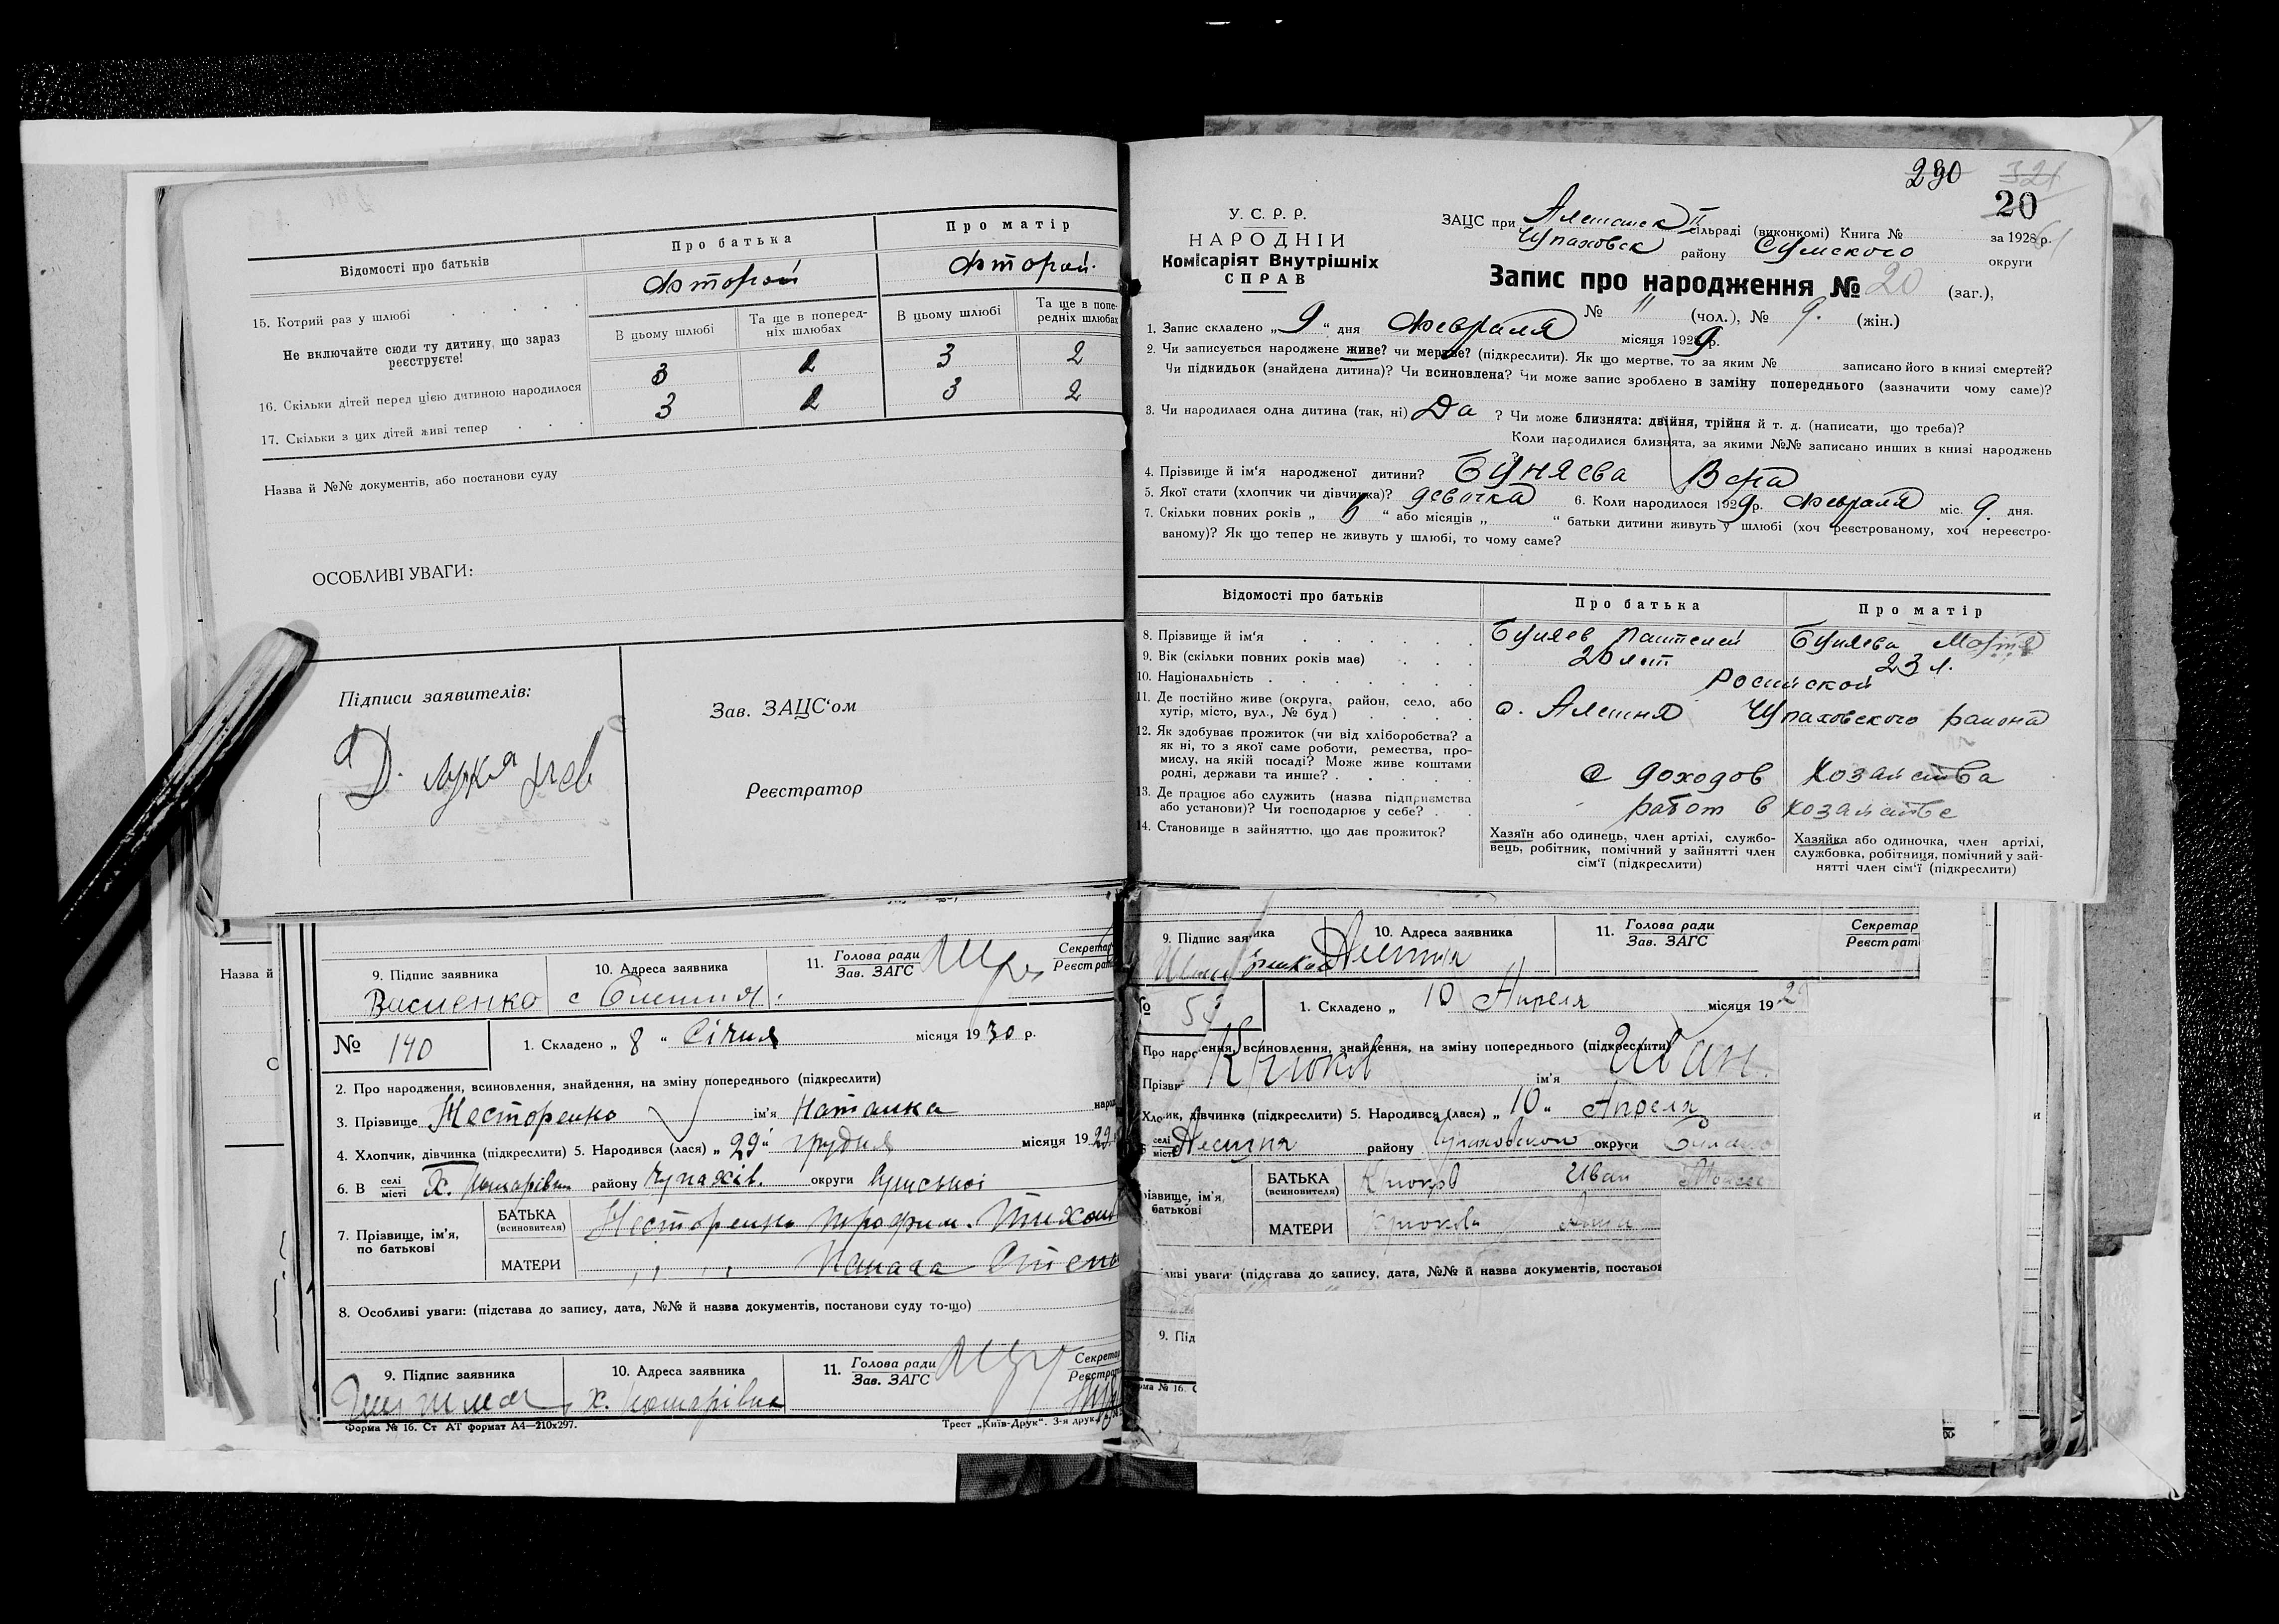 Відомості про батьків
Про батька
Про матір
Второй
Второй
15. Котрий раз у шлюбі
В цьому шлюбі
Та ще в поперед-
ніх шлюбах
В цьому шлюбі
Та ще в попе-
редніх шлюбах
Не включайте сюди ту дитину, що зараз
реєструєте!
16. Скільки дітей перед цією дитиною народилося
3 2 3 2
17. Скільки з цих дітей живі тепер
3 2 3 2
Назва й №№ документів, або постанови суду
ОСОБЛИВІ УВАГИ:
Підписи заявителів:
Зав. ЗАЦС'ом
Реєстратор
Назва й
9. Підпис заявника
10. Адреса заявника
11. Голова ради
Зав. ЗАГС
Секретар
Реєстрат
№ 140
1. Складено „ 8 “ Січня місяця 1930 р.
2. Про народження, всиновлення, знайдення, на зміну попереднього (підкреслити)
3. Прізвище Несторенко ім'я Наталка народ
4. Хлопчик, дівчинка (підкреслити) 5. Народився (лася) „ 29 “ грудня місяця 1929
6. В селі
місті
х. району Чупахів. округи Сумської
7. Прізвище, ім'я,
по батькові
БАТЬКА
(всиновителя)
Несторенко Трофим
МАТЕРИ
8. Особливі уваги: (підстава до запису, дата, №№ й назва документів, постанови суду то-що)
9. Підпис заявника
10. Адреса заявника
11. Голова ради
Зав. ЗАГС
Секретар
Реєстрат
Форма № 16. Ст АТ формат А4—210х297.
Трест „Київ-Друк“. 3-я друк.
230
321
20
У. С. Р. Р.
НАРОДНІЙ
Комісаріят Внутрішніх
СПРАВ
ЗАЦС при Алешанск сільраді (виконкомі) Книга № за 1928 р.
Чупаховск району Сумского округи
Запис про народження № 20 (заг.),
№ 11 (чол.), № 9. (жін.)
1. Запис складено „ 9 “ дня Февраля місяця 1929 р.
2. Чи записується народжене живе? чи мертве? (підкреслити). Як що мертве, то за яким № записано його в книзі смертей?
Чи підкидьок (знайдена дитина)? Чи всиновлена? Чи може запис зроблено в заміну попереднього (зазначити чому саме)?
3. Чи народилася одна дитина (так, ні) Да ? Чи може близнята: двійня, трійня й т. д. (написати, що треба)?
Коли народилися близнята, за якими №№ записано инших в книзі народжень
?
4. Прізвище й ім'я народженої дитини? Буняева Вера
5. Якої стати (хлопчик чи дівчинка)? девочка 6. Коли народилося 1929 р. Февраля міс. 9. дня.
7. Скільки повних років „ “ або місяців „ “ батьки дитини живуть у шлюбі (хоч реєстрованому, хоч нереєстро-
ваному)? Як що тепер не живуть у шлюбі, то чому саме?
Відомості про батьків
Про батька
Про матір
8. Прізвище й ім'я
Буняев Пантелей
Буняева
9. Вік (скільки повних років має)
20 лет
23 л.
10. Національність
Росийской
11. Де постійно живе (округа, район, село, або
хутір, місто, вул., № буд.)
с. Алешня Чупаховского района
12. Як здобуває прожиток (чи від хліборобства? а
як ні, то з якої саме роботи, ремества, про-
мислу, на якій посаді? Може живе коштами
родні, держави та инше?
С доходов хозайства
13. Де працює або служить (назва підприємства
або установи)? Чи господарює у себе?
работ в хозайстве
14. Становище в зайняттю, що дає прожиток?
Хазяїн або одинець, член артілі, службо-
вець, робітник, помічний у зайнятті член
сім'ї (підкреслити)
Хазяйка або одиночка, член артілі,
службовка, робітниця, помічний у зай-
нятті член сім'ї (підкреслити)
9. Підпис заявника
10. Адреса заявника
Алешня
11. Голова ради
Зав. ЗАГС
Секретар
Реєстрат
1. Складено „ 10 Апреля місяця 192
Про нар ення, всиновлення, знайдення, на зміну попереднього (підкреслити)
Прізви Крюков ім'я Иван
Хло ик, дівчинка (підкреслити) 5. Народився (лася) „ 10 “ Апреля
селі
місті
Алешня району Чупаховской округи
різвище, ім'я,
батькові
БАТЬКА
(всиновителя)
Крюков Иван
МАТЕРИ
Крюкова
ливі уваги (підстава до запису, дата, №№ й назва документів, постанов
9. Під
рма № 16.